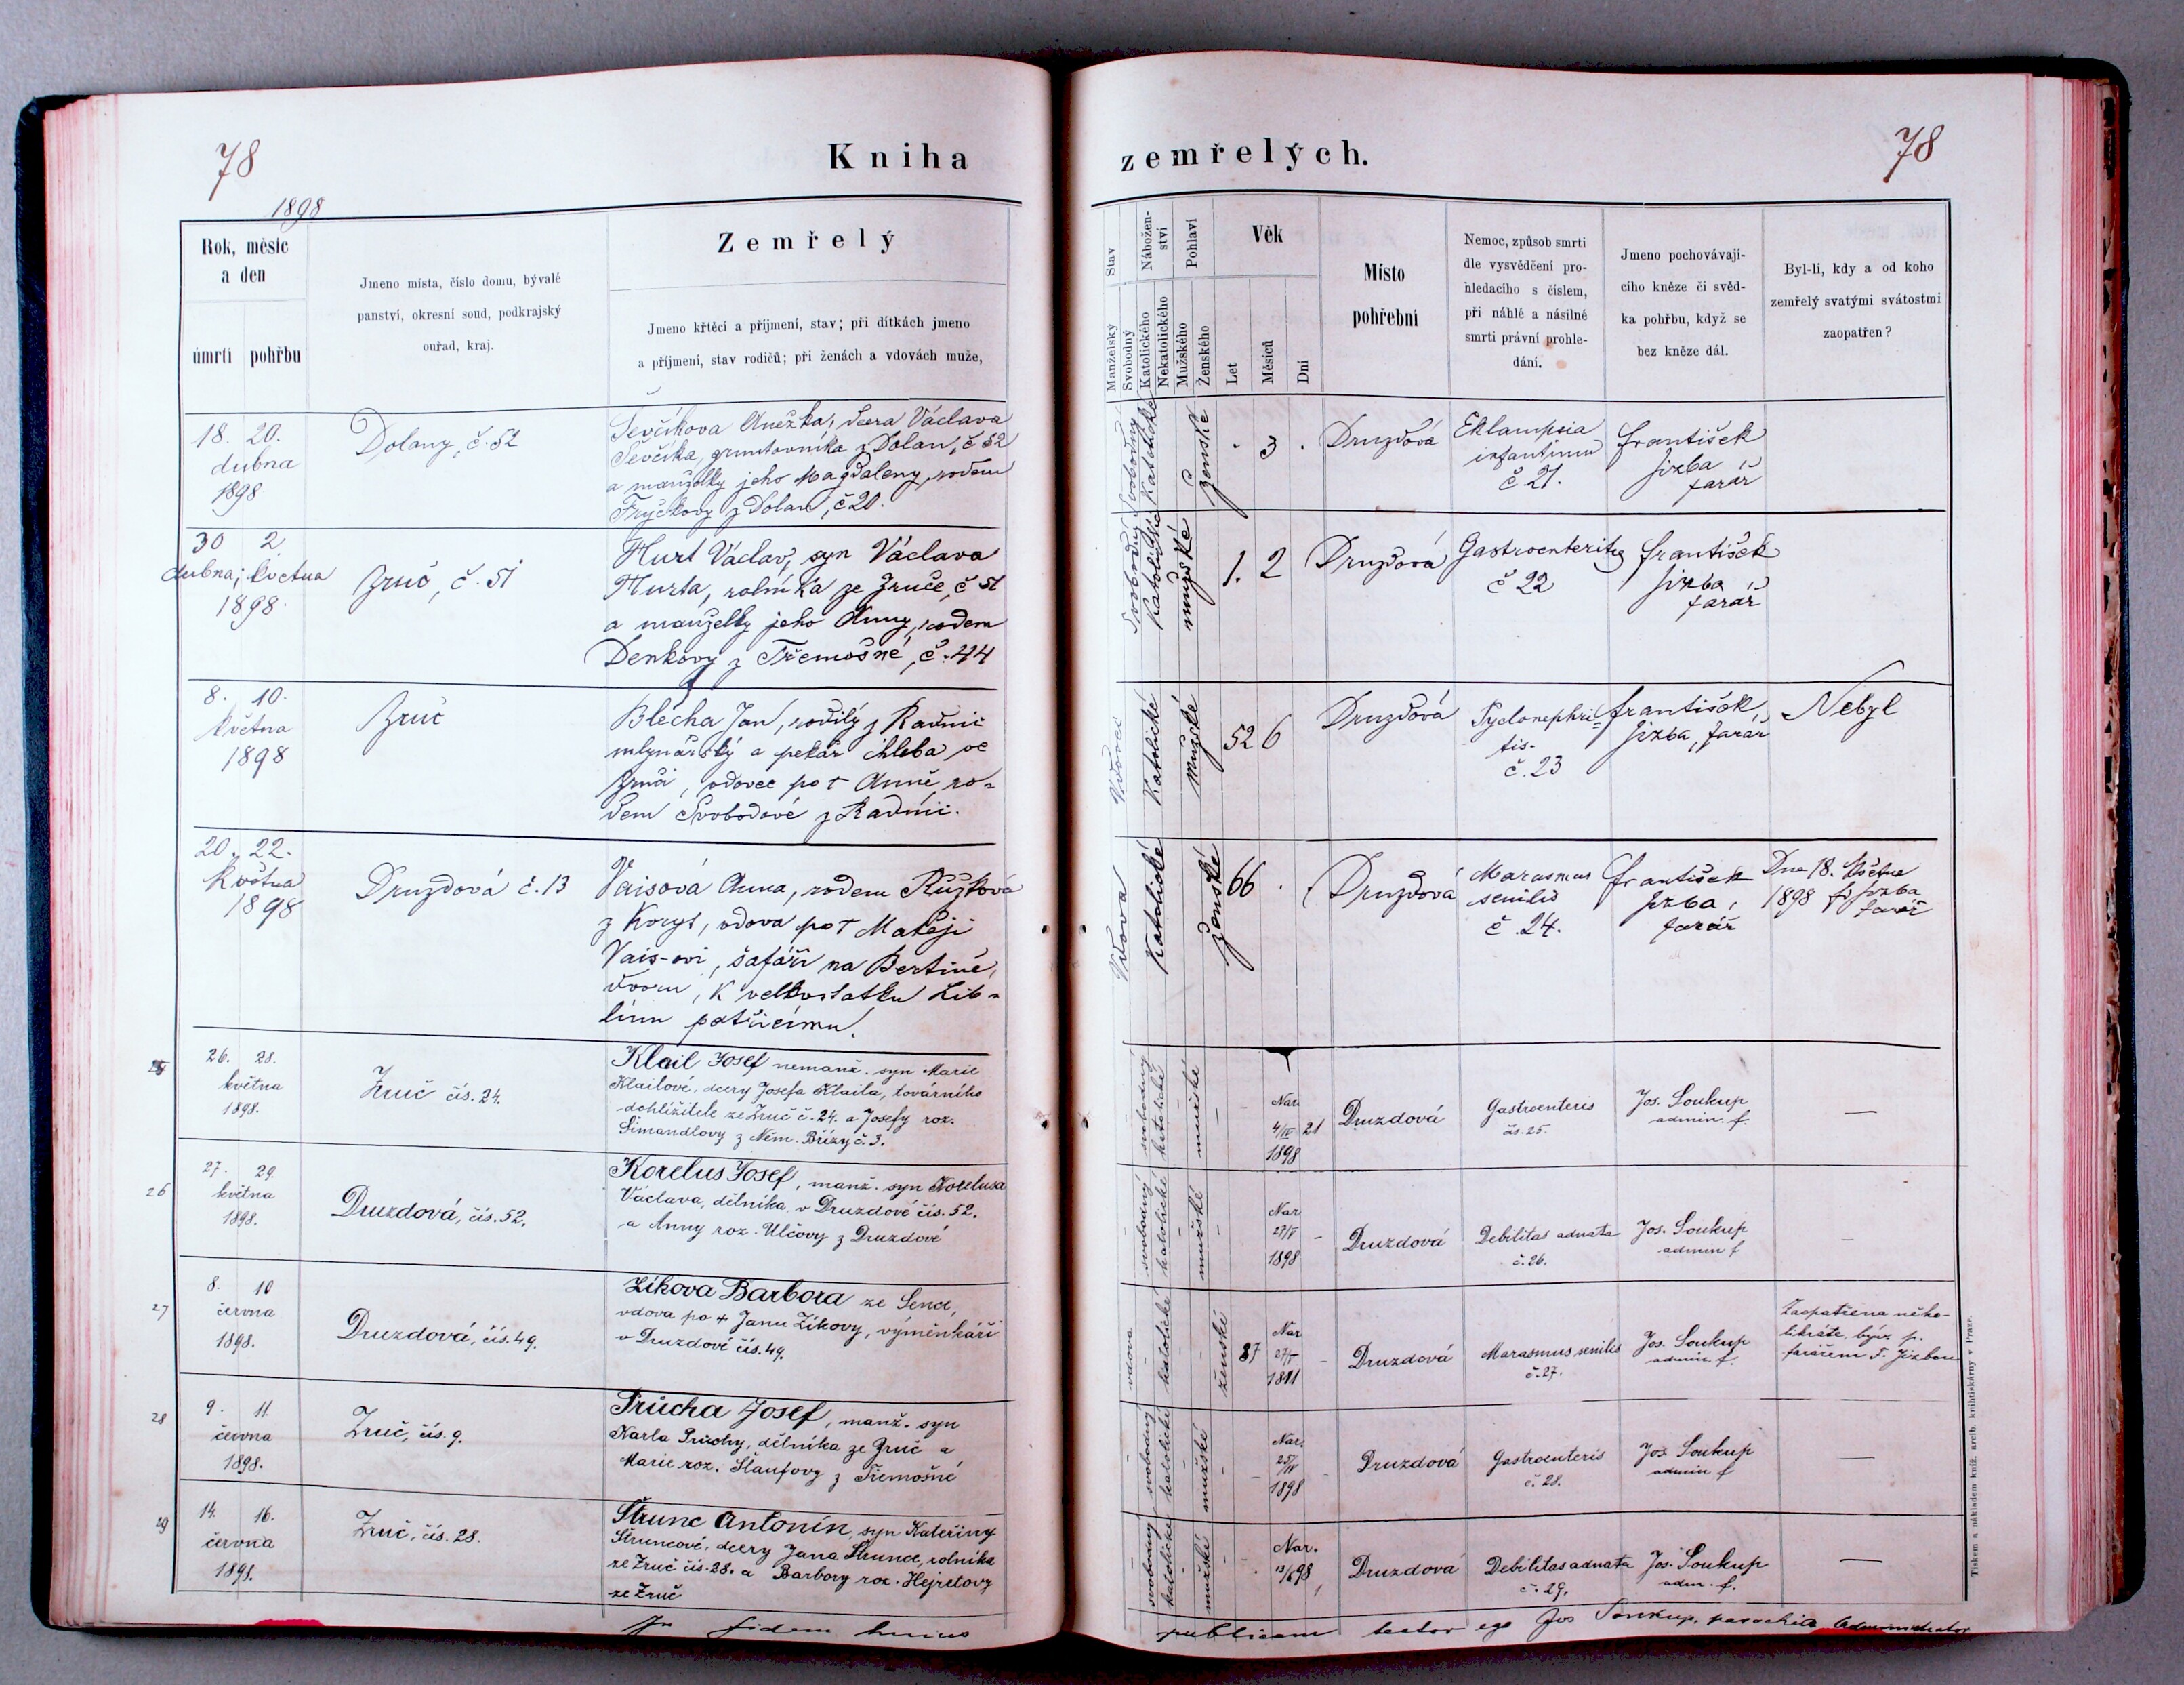 78
Kniha
zemřelých.
78
1898
Rok, měsíc
a den
úmrtí
pohřbu
Jmeno místa, číslo domu, bývalé
panství, okresní soud, podkrajský
ouřad, kraj.
Zemřelý
Jmeno křtěcí a příjmení, stav; při dítkách jmeno
a příjmení, stav rodičů; při ženách a vdovách muže,
Stav
Manželský
Svobodný
Nábožen-
ství
Katolického
Nekatolického
Pohlaví
Mužského
Ženského
Věk
Let
Měsíců
Dní
Místo
pohřební
Nemoc, způsob smrti
dle vysvědčení pro-
hledacího s číslem,
při náhlé a násilné
smrti právní prohle-
dání.
Jmeno pochovávají-
cího kněze či svěd-
ka pohřbu, když se
bez kněze dál.
Byl-li, kdy a od koho
zemřelý svatými svátostmi
zaopatřen?
18. 20.
dubna
1898
Dolany, č. 52
Ševčíkova Anežka, dcera Václava
Ševčíka, gruntovníka z Dolan, č 52
a manželky jeho Magdaleny, rodem
z Dolan, č 20.
Svobodný
Katolické
ženské
3
Druzdová
Eklampsia
infantinu
č 21.
František
Jizba
farář
30 2
dubna; května
1898.
Zruč, č. 51
Hurt Václav, syn Václava
Hurta, rolníka ze Zruče, č 51
a manželky jeho Anny, rodem
Denkovy z Třemošné, č. 44
Svobodný
Katolické
mužské
1. 2
Druzdová
Gastroenteritis
č 22
František
Jizba
farář
8. 10.
května
1898
Zruč
Blecha Jan, rodilý z Radnic
mlynářský a pekař chleba ve
Zruči, vdovec po † Anně, ro-
dem Svobodové z Radnic.
Vdovec
Katolické
mužské
52 6
Druzdová
Pyelonephri-
tis.
č. 23
František
Jizba, farář
Nebyl
20. 22.
května
1898
Druzdová č. 13
Vaisová Anna, rodem Růžková
z Koryt, vdova po † Matěji
Vais-ovi, šafáři na Bertině,
dvoru, k velkostatku Lib-
línu patřícímu.
Vdova
Katolické
ženské
66
Druzdová
Marasmus
senilis
č. 24.
František
Jizba,
farář
Dne 18. května
1898 Fr Jizba
farář
26. 28.
května
1898.
Zruč čís. 24.
Klail Josef nemanž. syn Marie
Klailové, dcery Josefa Klaila, továrního
dohlížitele ze Zruč č. 24. a Josefy roz.
Šimandlovy z Něm. Břízy č. 3.
svobodný
katolické
mužské
Nar.
4/IV 21
1898
Druzdová
Gastroenteris
čís. 25.
Jos. Soukup
admin. f.
—
26
27. 29.
května
1898.
Druzdová, čís. 52.
Korelus Josef, manž. syn Korelusa
Václava, dělníka, v Druzdové čís. 52.
a Anny roz. Ulčovy z Druzdové
svobodný
katolické
mužské
Nar
27/V
1898
Druzdová
Debilitas adnata
č. 26.
Jos. Soukup
admin f
—
27
8. 10
června
1898.
Druzdová, čís. 49.
Zíkova Barbora ze Senci,
vdova po † Janu Zíkovy, výměnkáři
v Druzdové čís. 49.
vdova
katolické
ženské
87
Nar
27/V
1811
Druzdová
Marasmus senilis
č. 27.
Jos. Soukup
admin. f.
Zaopatřena něko-
likráte, býv. p.
farářem F. Jizbou
28
9. 11.
června
1898.
Zruč, čís. 9.
Průcha Josef, manž. syn
Karla Průchy, dělníka ze Zruč a
Marie roz. Šlaufovy z Třemošné
svobodný
katolické
mužské
Nar.
25/IV
1898
Druzdová
Gastroenteris
č. 28.
Jos Soukup
admin f
—
29
14. 16.
června
1898.
Zruč, čís. 28.
Štrunc Antonín, syn Kateřiny
Štruncové, dcery Jana Štrunce, rolníka
ze Zruč čís. 28. a Barbory roz. Hejretovy
ze Zruč
svobodný
katolické
mužské
Nar.
13/6 98
Druzdová
Debilitas adnata
č. 29.
Jos. Soukup
adm. f.
—
In fidem huius
publicam testor ego Jos Soukup, parochia Administrator
Tiskem a nákladem kníž. arcib. knihtiskárny v Praze.